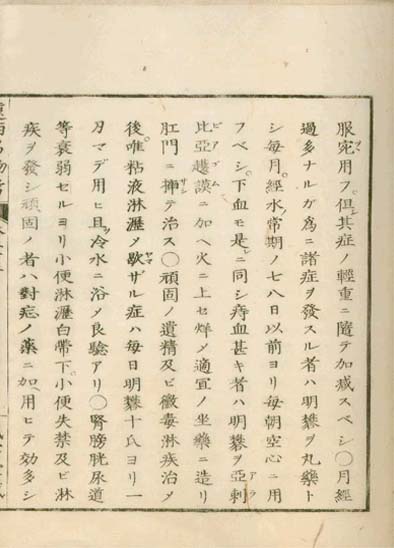 服シ宛用フ。但其症ノ輕重ニ隨テ加減スベシ〇月經
過多ナルガ爲ニ諸症ヲ發スル者ハ明礬ヲ丸藥ト
シ毎月。經水常期ノ七八日以前ヨリ毎朝空心ニ用
フベシ。下血モ是ニ同シ痔血甚キ者ハ明礬ヲ亞剌アラ
比亞ビア護謨ゴムニ加ヘ火ニ上セ烊メ適宜ノ坐藥ニ造リ
肛門ニ挿テ治ス〇頑固ノ遺精及ビ黴毒淋疾治メ
後。唯粘液淋瀝メ歇ヤマザル症ハ毎日明礬十氏ヨリ一
刃マデ用ヒ且ツ冷水ニ浴メ良驗アリ〇腎膀胱尿道
等衰弱セルヨリ小便淋瀝白帶下。小便失禁及ビ淋
疾ヲ發シ頑固ノ者ハ對症ノ藥ニ加ヘ用ヒテ効多シ